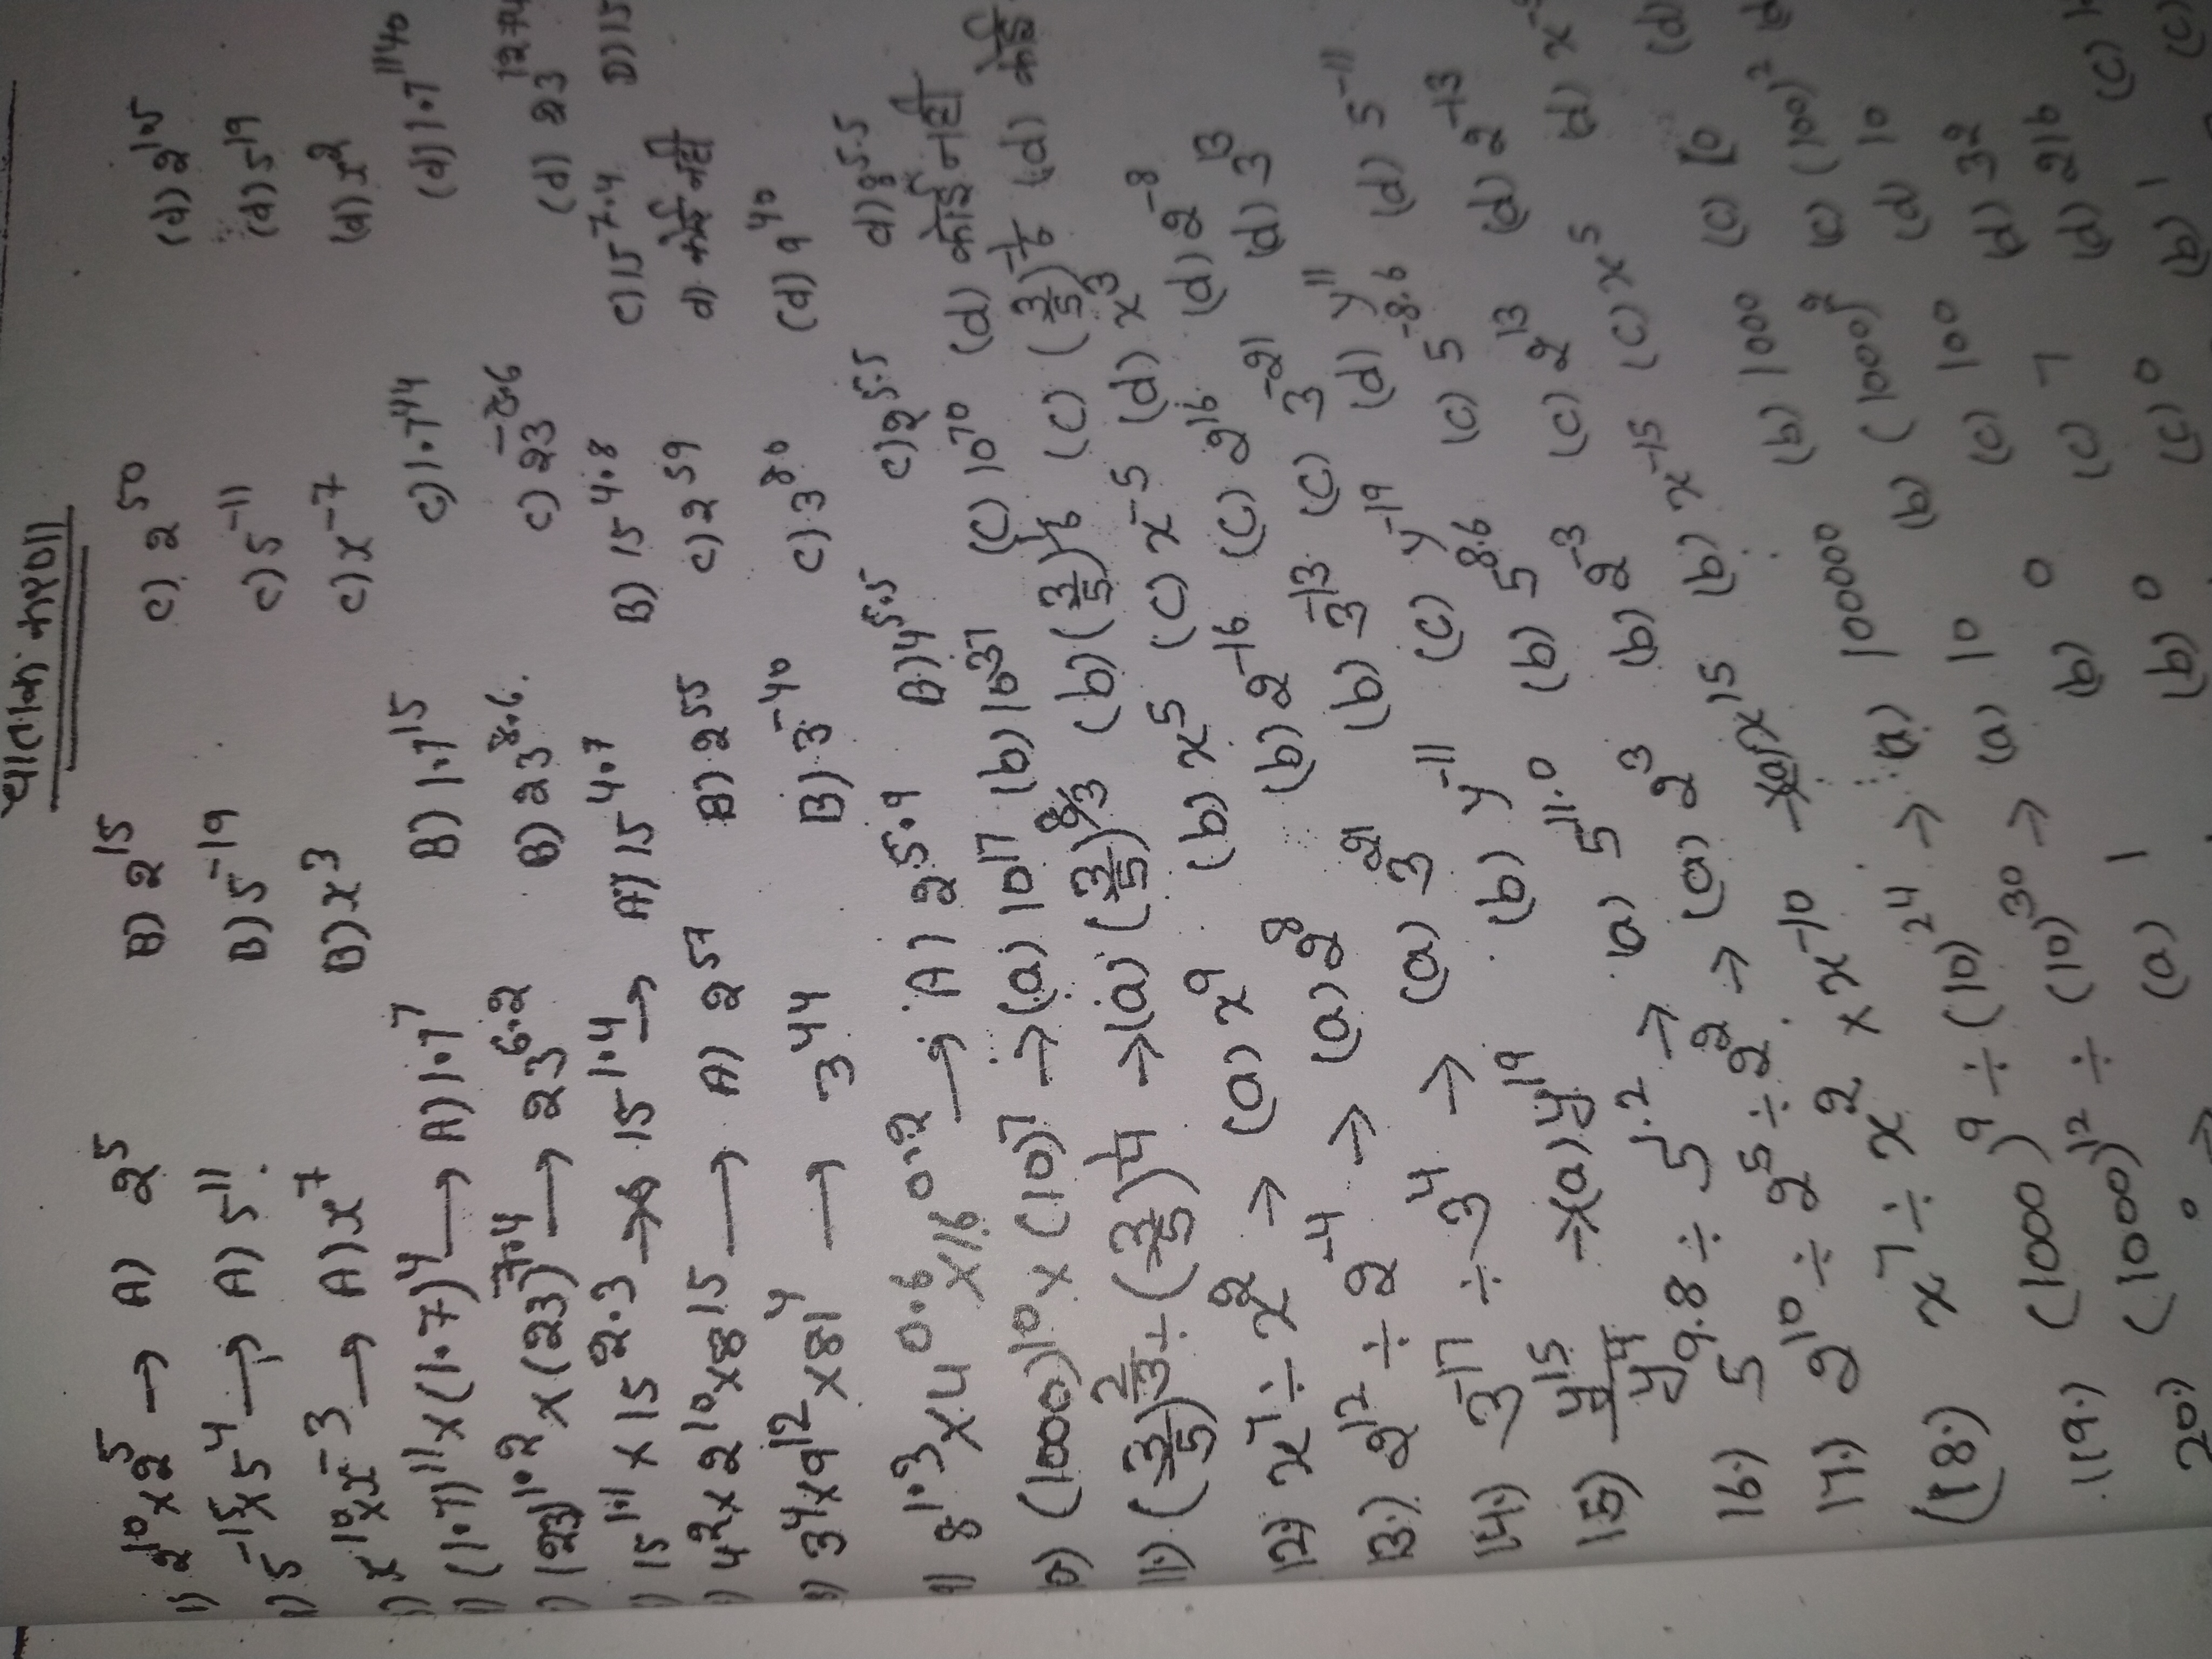 घातांक करणी
1) 2^10 x 2^5 → A) 2^5 B) 2^15 C) 2^50 (d) 2^1.5
5^-15 x 5^4 → A) 5^11 B) 5^-19 C) 5^-11 (d) 5^19
x^10 x x^-3 → A) x^7 B) x^3 C) x^-7 (d) x^2
(1.7)^11 x (1.7)^4 → A) 1.7^7 B) 1.7^15 C) 1.7^44 (d) 1.7^1140
(23)^1.2 x (23)^7.4 → 23^6.2 B) 23^8.6 C) 23^-8.6 (d) 23^1274
15^1.1 x 15^2.3 → 15^1.4 → A) 15^4.7 B) 15^4.8 C) 15^7.4 D) 15
4^2 x 2^10 x 8^15 → A) 2^57 B) 2^55 C) 2^59 d) कोई नही
3^4 x 9^12 x 81^4 → 3^44 B) 3^-40 C) 3^80 (d) 9^40
9) 8^1.3 x 4^0.6 x 16^0.2 → A) 2^5.9 B) 4^5.5 C) 2^5.5 d) 8^5.5
(1000)^10 x (10)^7 → (a) 10^17 (b) 10^37 (c) 10^70 (d) कोई नही
11) (3/5)^2/3 ÷ (3/5)^1/4 → (a) (3/5)^8/3 (b) (3/5)^1/6 (c) (3/5)^-1/6 (d) कोई
12) x^7 ÷ x^2 → (a) x^9 (b) x^5 (c) x^-5 (d) x^3
13) 2^12 ÷ 2^-4 → (a) 2^8 (b) 2^-16 (c) 2^16 (d) 2^-8
14) 3^-17 ÷ 3^4 → (a) 3^21 (b) 3^-13 (c) 3^-21 (d) 3^13
15) y^15/y^4 → (a) y^19 (b) y^-11 (c) y^-19 (d) y^11
16) 5^9.8 ÷ 5^1.2 → (a) 5^11.0 (b) 5^8.6 (c) 5^-8.6 (d) 5^-11
17) 2^10 ÷ 2^5 ÷ 2^2 → (a) 2^3 (b) 2^-3 (c) 2^13 (d) 2^-13
(18) x^7 ÷ x^2 x x^-10 → (a) x^15 (b) x^-15 (c) x^5 (d) x
(1000)^9 ÷ (10)^24 → (a) 10000 (b) 1000 (c) 10 (d)
119) (1000)^12 ÷ (10)^30 → (a) 10 (b) (100)^9 (c) (100)^2 (d)
20) (a) 1 (b) 0 (c) 100 (d) 10
(b) 0 (c) 7 (d) 32
(c) 0 (d) 216
(b) 1 (c) 1